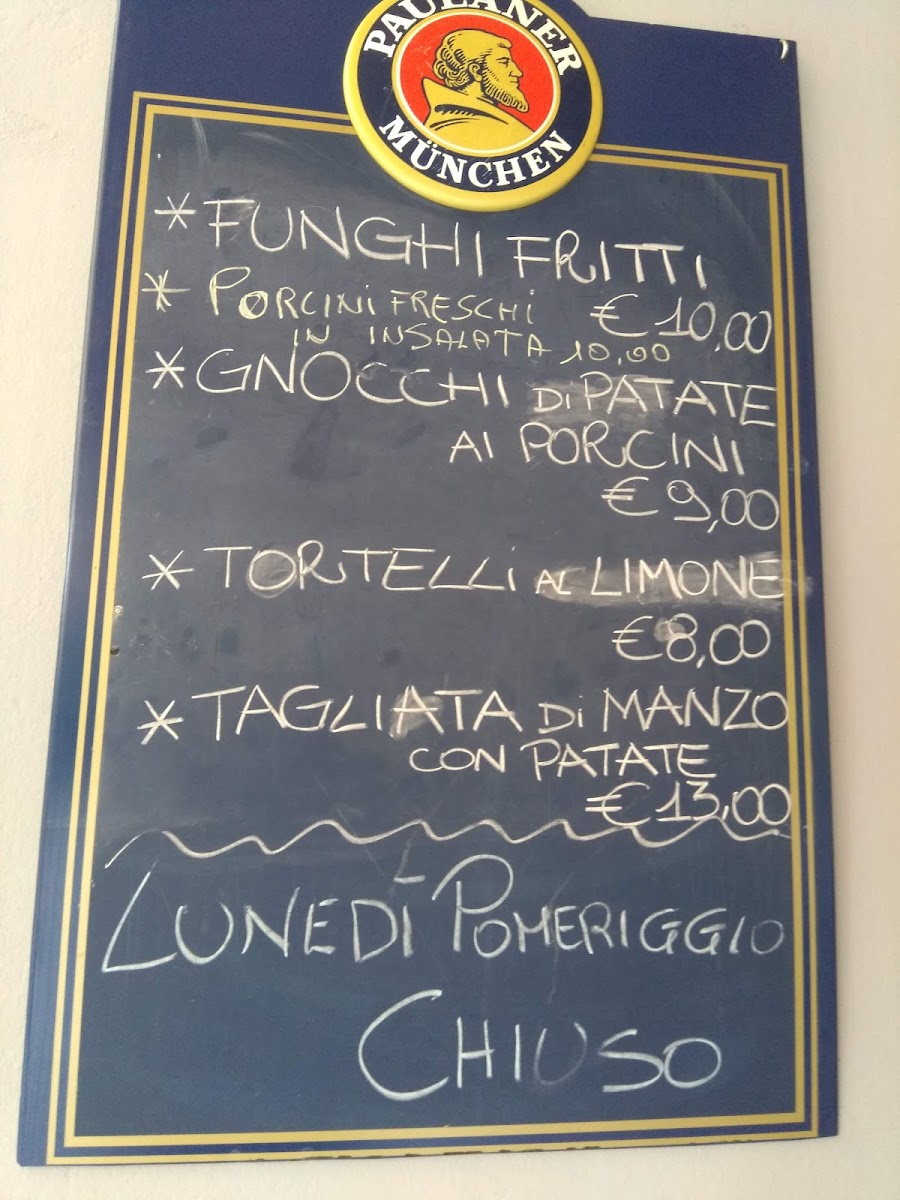 PAULANER
MÜNCHEN
* FUNGHI FRITTI
€ 10,00
* PORCINI FRESCHI
IN INSALATA 10,00
* GNOCCHI Di PATATE
AI PORCINI
€ 9,00
* TORTELLi AL LIMONE
€ 8,00
* TAGLIATA Di MANZO
CON PATATE
€ 13,00
LUNEDÌ POMERIGGIO
CHIUSO